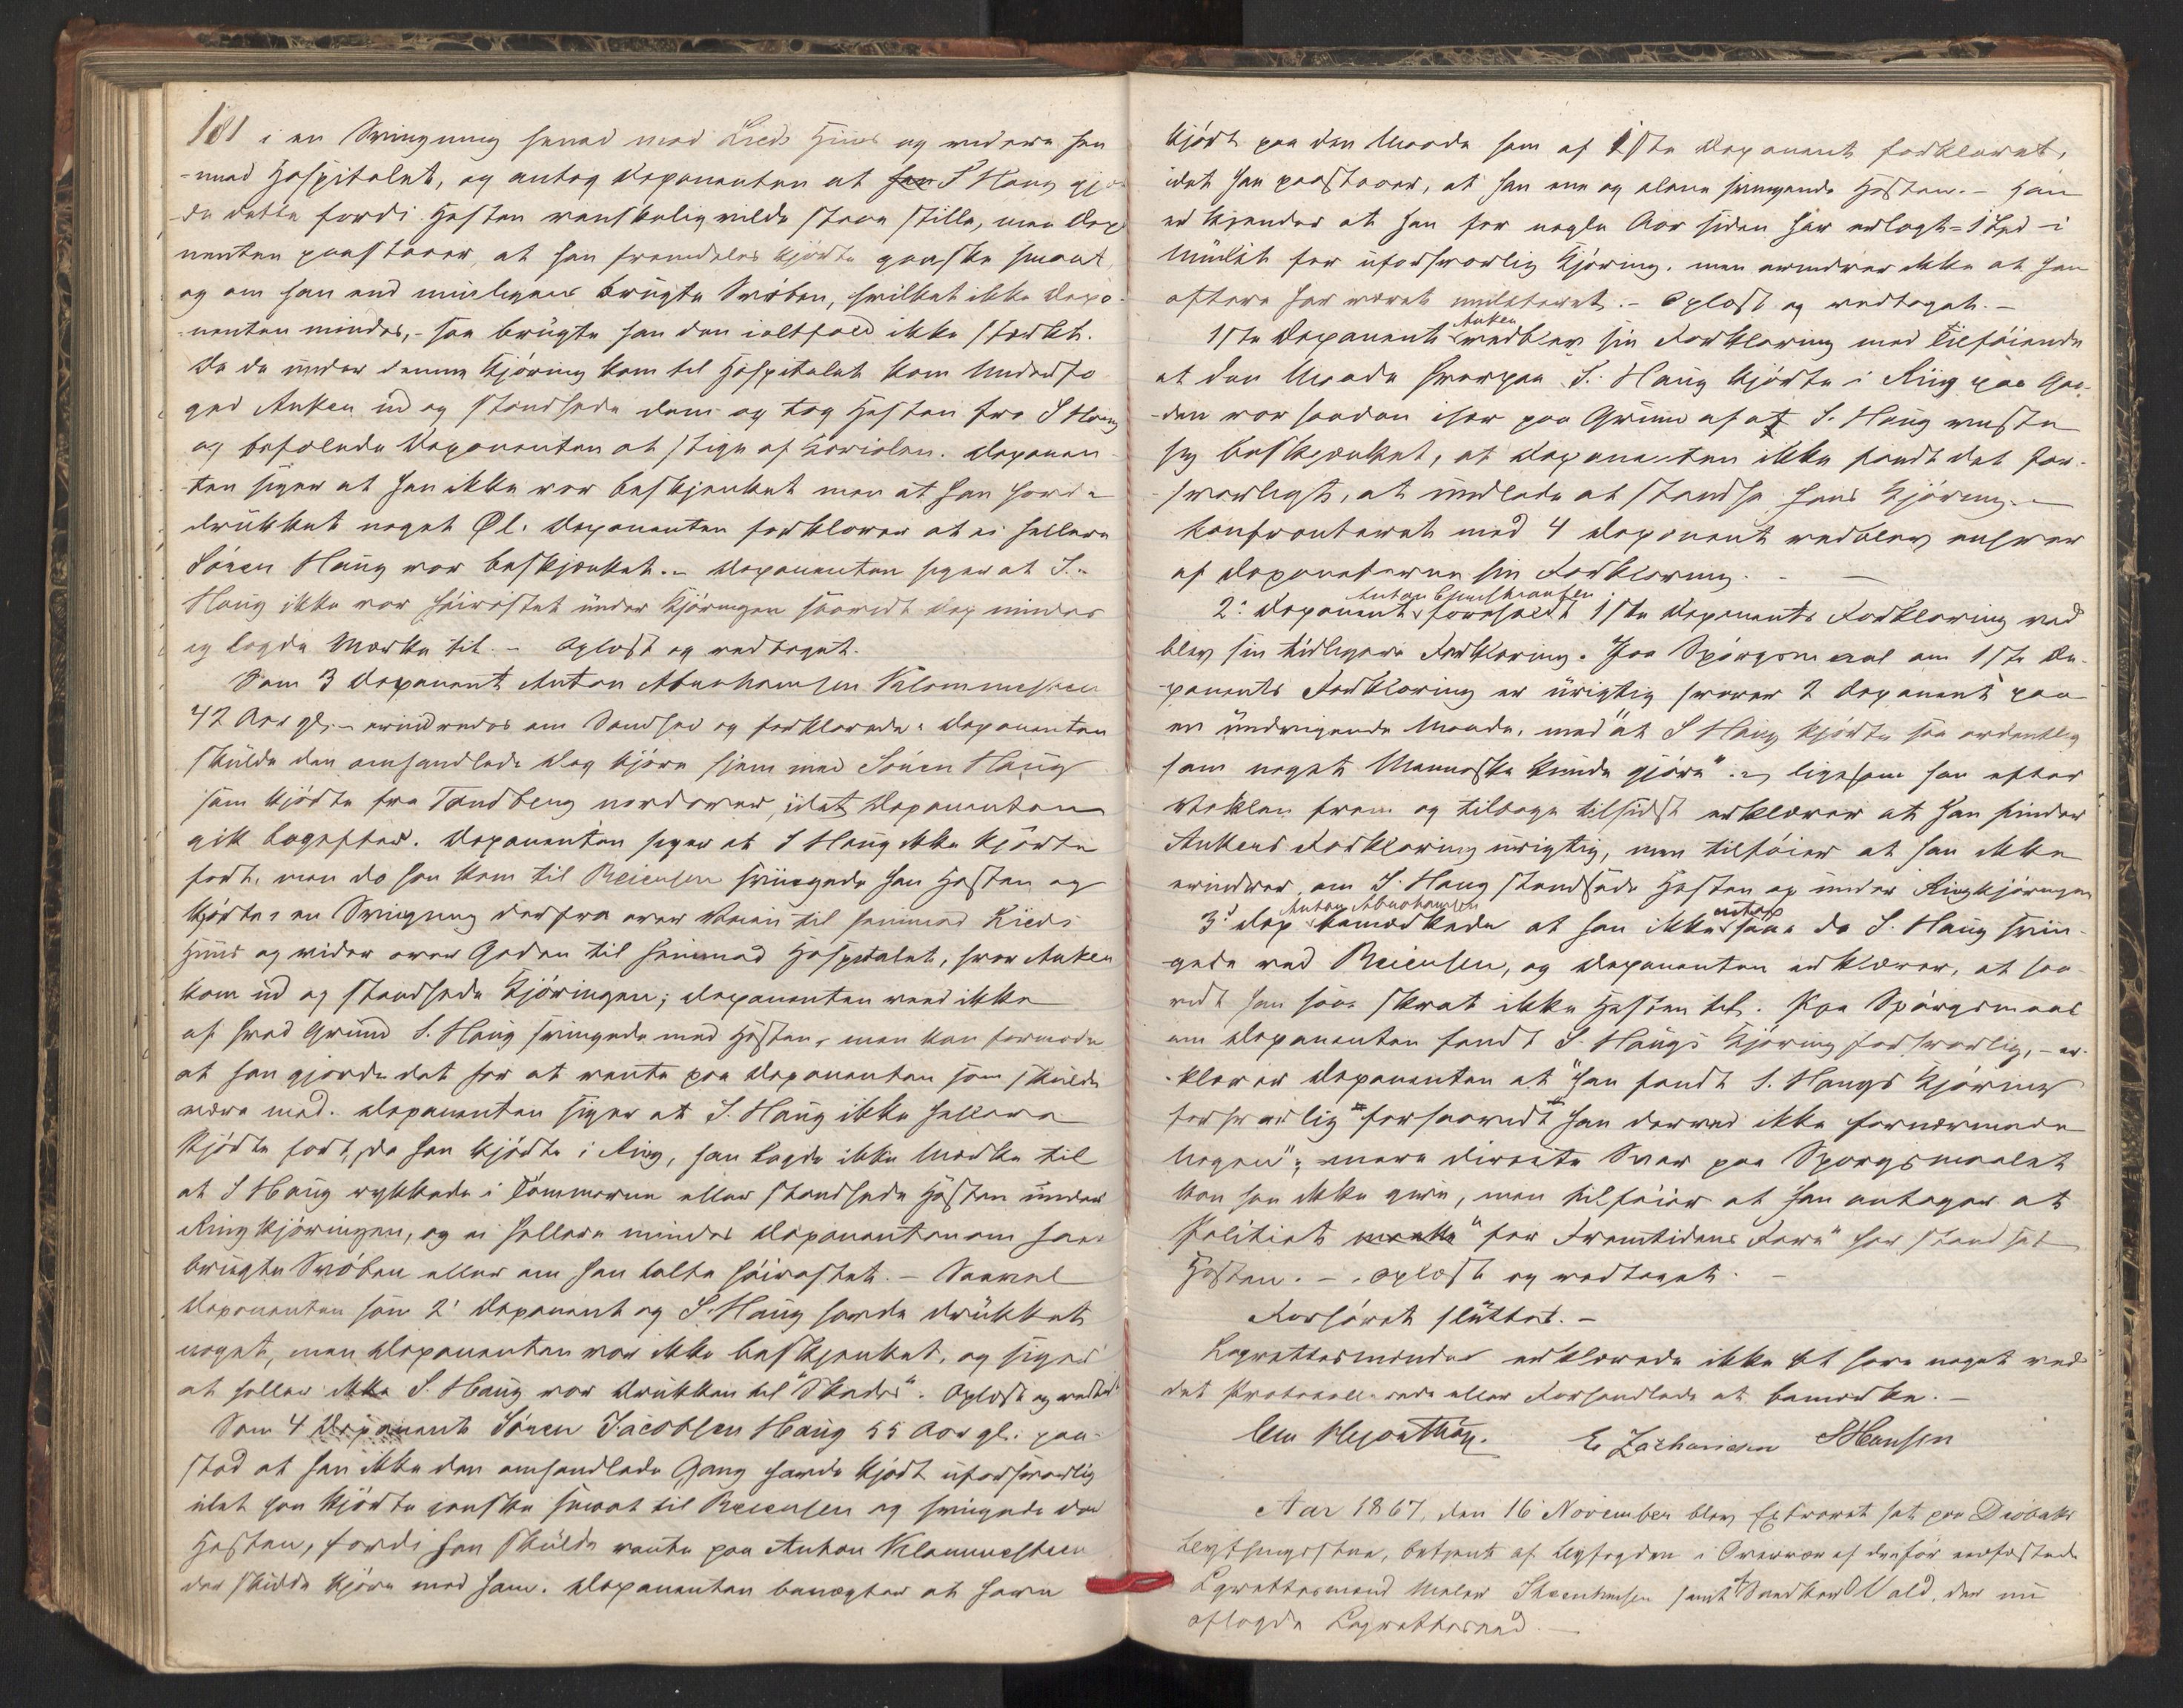 181 i en Svingning henad mod Lieds Huus og videre hen
-imod Hospitalet, og antog Deponenten at han S Haug gjor-
de dette fordi Hesten vanskelig vilde staae stille, men Depo
nenten paastaaer, at han fremdeles kjørte ganske smaat,
og om han end muligens brugte Svøben, hvilket ikke Depo-
nenten mindes, - saa brugte han den ialtfald ikke stærkt.
Da de under denne Kjøring kom til Hospitalet kom Underfo
ged Anker ud og standsede dem og tog Hesten fra S Haug
og befalede Deponenten at stige af Kariolen. Deponen-
ten siger at han ikke var beskjenket men at han havde
drukket noget Øl. Deponenten forklarer at ei hellere
Sören Haug var beskjænket. - Deponenten siger at S.
Haug ikke var høirøstet under Kjøringen saavidt Dep mindes
og lagde Mærke til. - Oplæst og vedtaget.
Som 3 Deponent Anton Abrahamsen Klommesteen
42 Aar gl. - erindredes om Sandhed og forklarede: Deponenten
skulde den omhandlede Dag kjøre hjem med Sören Haug
som kjørte fra Tandberg nordover, idet Deponenten
gik bagefter. Deponenten siger at S Haug ikke kjørte
fort, men da han kom til Reiersen svingede han Hesten og
kjørte i en Svingning derfra over Veien til henimod Lieds
Huus og vider over Gaden til henimod Hospitalet, hvor Anker
kom ud og standsede Kjøringen; Deponenten veed ikke
af hvad Grund S. Haug svingede med Hesten, men kan formode
at han gjorde det for at vente paa Deponenten som skulde
være med. Deponenten siger at S. Haug ikke hellere
kjørte fort, da han kjørte i Ring, han lagde ikke Mærke til
at S Haug rykkede i Tømmerne eller standsede Hesten under
Ringkjøringen, og ei hellere mindes Deponenten om han
brugte Svøben eller om han talte høirøstet. - Saavel
Deponenten som 2' Deponent og S. Haug havde drukket
noget, men Deponenten var ikke beskjenket, og siger
at heller ikke S. Haug var drukken til "Skade". Oplæst og vedtaget
Som 4 Deponent Sören Jacobsen Haug 55 Aar gl. paa-
stod at han ikke den omhandlede Gang havde kjørt uforsvarlig
idet han kjørte ganske smaat til Reiersen og svingede der
Hesten, fordi han skulde vente paa Anton Klommesteen
der skulde kjøre med ham. Deponenten benægter at have
kjørt paa den Maade som af 1ste Deponent forklaret,
idet han paastaaer, at han ene og alene svingede Hesten. - Han
erkjender at han for nogle Aar siden har erlagt 1 Spd i
Mulkt for uforsvarlig Kjøring, men erindrer ikke at han
oftere har været mulkteret. - Oplæst og vedtaget. -
Anker
1ste Deponent vedblev sin Forklaring med Tilføiende
at den Maade hvorpaa S. Haug kjørte i Ring paa Ga-
den var saadan især paa Grund af at S. Haug viiste
sig beskjænket, at Deponenten ikke fandt det for-
svarligt, at undlade at standse hans Kjøring. -
Konfronteret med 4 Deponent vedblev enhver
af Deponenterne sin Forklaring. -
2' Deponent foreholdt 1ste Deponents Forklaring ved
blev sin tidligere Forklaring. Paa Spørgsmaal om 1ste De-
ponents Forklaring er urigtig svarer 2 Deponent paa
en undvigende Maade, med "at S Haug kjørte saa ordentlig
som noget Menneske kunde gjøre". - ligesom han efter
Vaklen frem og tilbage tilsidst erklærer at han finder
Ankers Forklaring urigtig, men tilføier at han ikke
erindrer, om S. Haug standsede Hesten op under Ringkjøringen
Anton Abrahamsen
3' Dep bemærkede at han ikke saae da S. Haug svin-
gede ved Reiersen, og Deponenten erklærer, at saa-
vidt han saae skvat ikke Hesten til. Paa Spørgsmaal
om Deponenten fandt S. Haugs Kjøring forsvarlig, - er-
-klærer Deponenten at "han fandt S. Haugs Kjøring
forsvarlig" "forsaavidt han derved ikke fornærmede
Nogen"; mere directe Svar paa Spørgsmaalet
kan han ikke give, men tilføier at han antager at
Politiet "for Fremtidens Fare" har standset
Hesten. - Oplæst og vedtaget. -
Forhøret sluttet. -
Lagrettesmændene erklærede ikke at have noget ved
det Protocollerede eller Forhandlede at bemærke. -
E Zachariasen SHansen
Aar 1867, den 16 November blev Extraret sat paa Drøbaks
Bythingstue, betjent af Byfogden i Overvær af de før eedfæstede
Lagrettesmænd Maler Steenhansen samt Snedker Wald, der nu
aflagde Lagretteseed. -